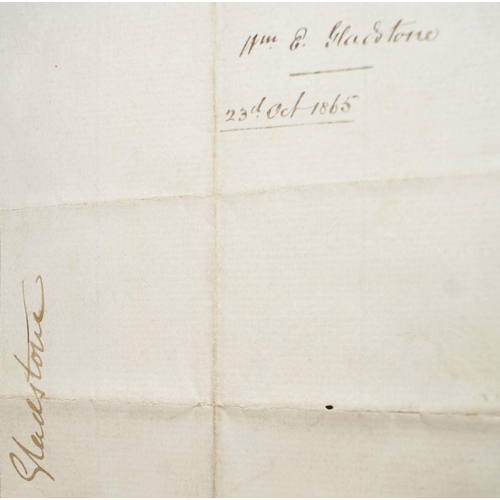 Wm E. Gladstone
23d Oct 1865
Gladstone